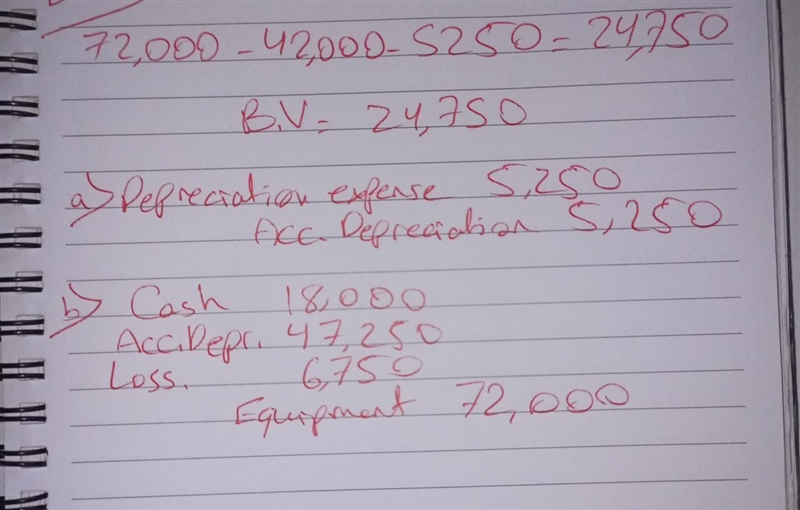 72,000 - 42,000 - 5250 = 24,750
B.V = 24,750
a) Depreciation expense 5,250
Acc. Depreciation 5,250
b) Cash 18,000
Acc.Depr. 47,250
Loss. 6,750
Equipment 72,000